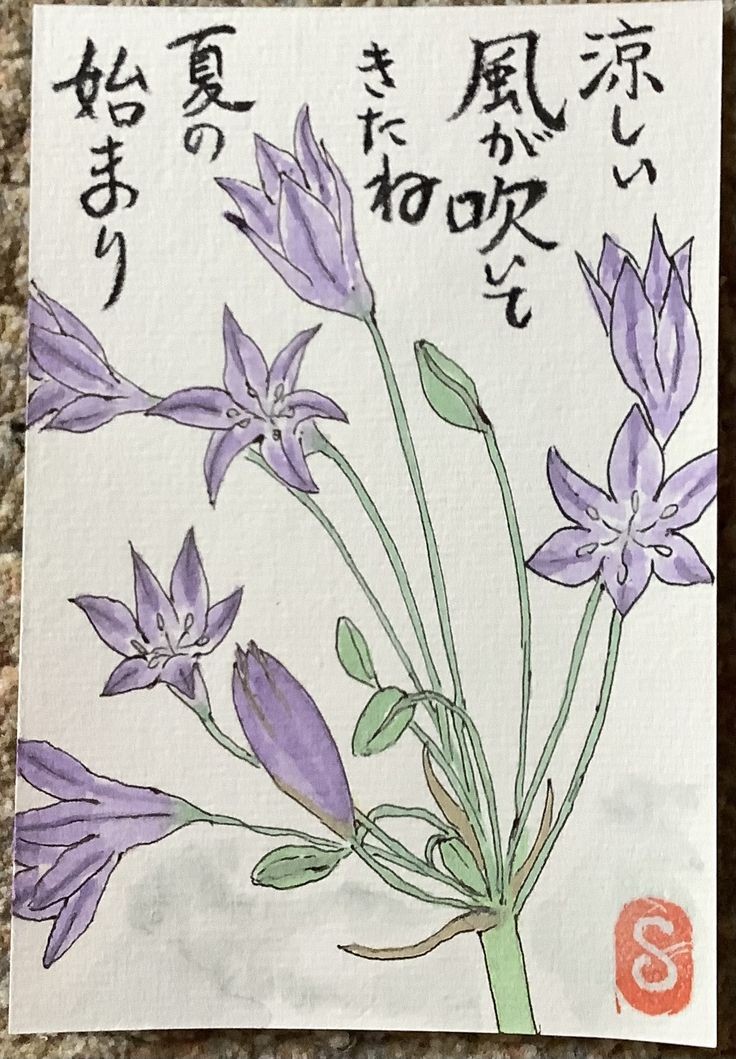 涼しい
風が吹いて
きたね
夏の
始まり
S